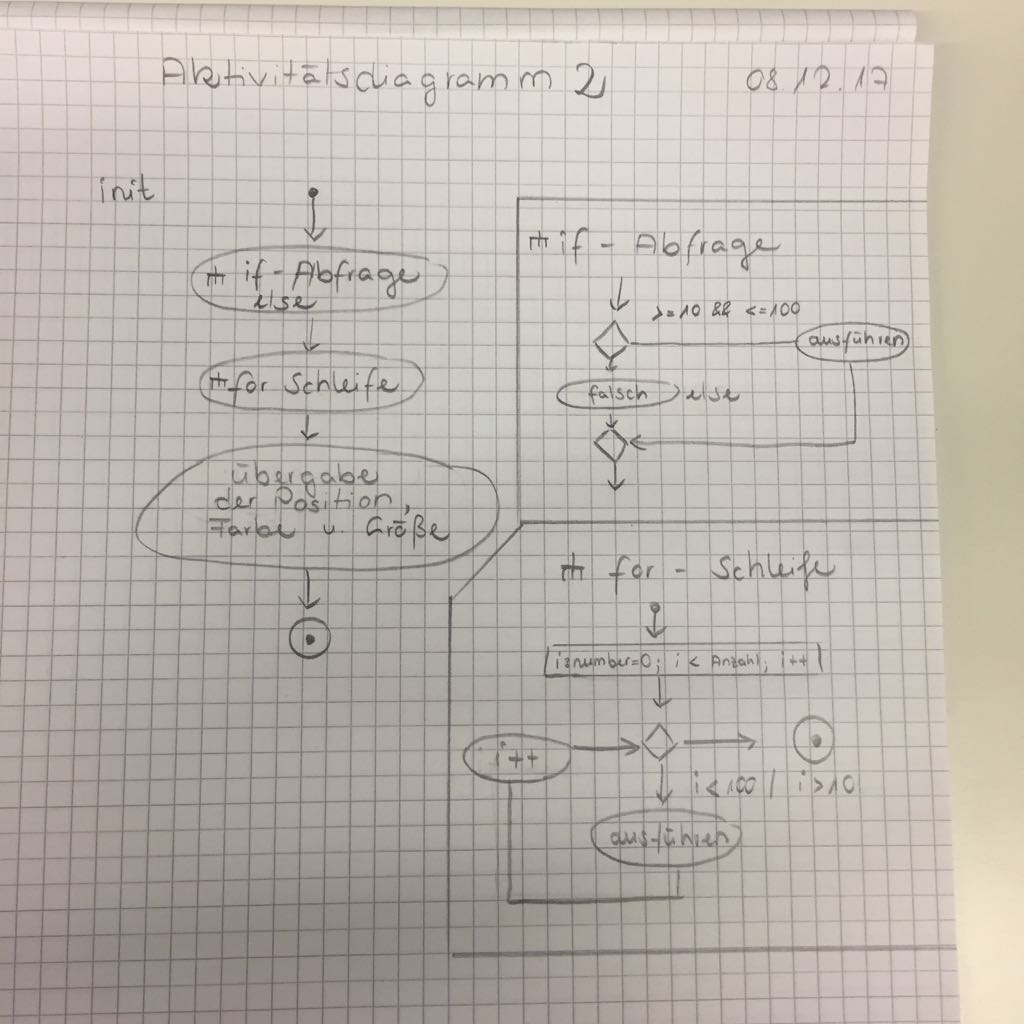 Aktivitätsdiagramm 2 08.12.17
init
if-Abfrage
else
for Schleife
Übergabe
der Position,
Farbe u. Größe
if - Abfrage
>=10 && <=100
ausführen
falsch else
for - Schleife
i:number=0; i < Anzahl; i++
i++
i<100 / i>10
ausführen